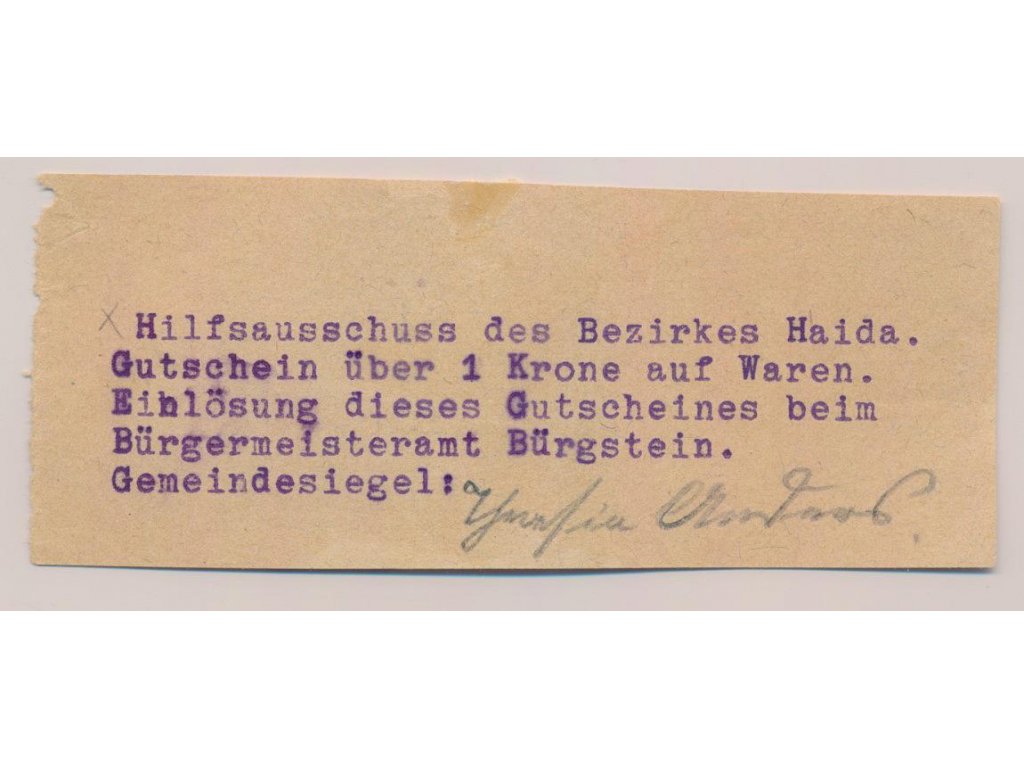 Hilfsausschuss des Bezirkes Haida.
Gutschein über 1 Krone auf Waren.
Einlösung dieses Gutscheines beim
Bürgermeisteramt Bürgstein.
Gemeindesiegel:
Theresia Anders.